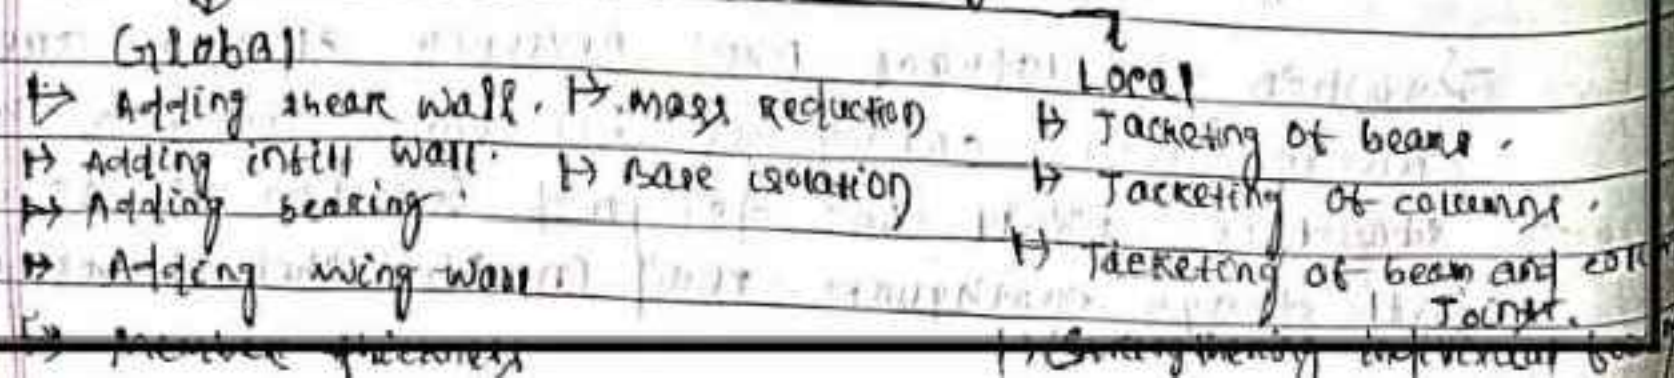 Global
Local
Adding shear wall. Mass Reduction
Adding infill wall. Base isolation
Adding bearing.
Adding wing wall.
Jacketing of beams.
Jacketing of columns.
Jacketing of beam and
Joint.